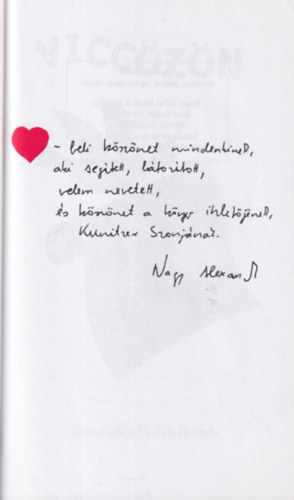 VICCÖZÖN
- beli köszönet mindenkinek,
aki segített, bátorított,
velem nevetett,
és köszönet a könyv ihletőjének,
Kunitzer Szonjának.
Nagy Alexandra